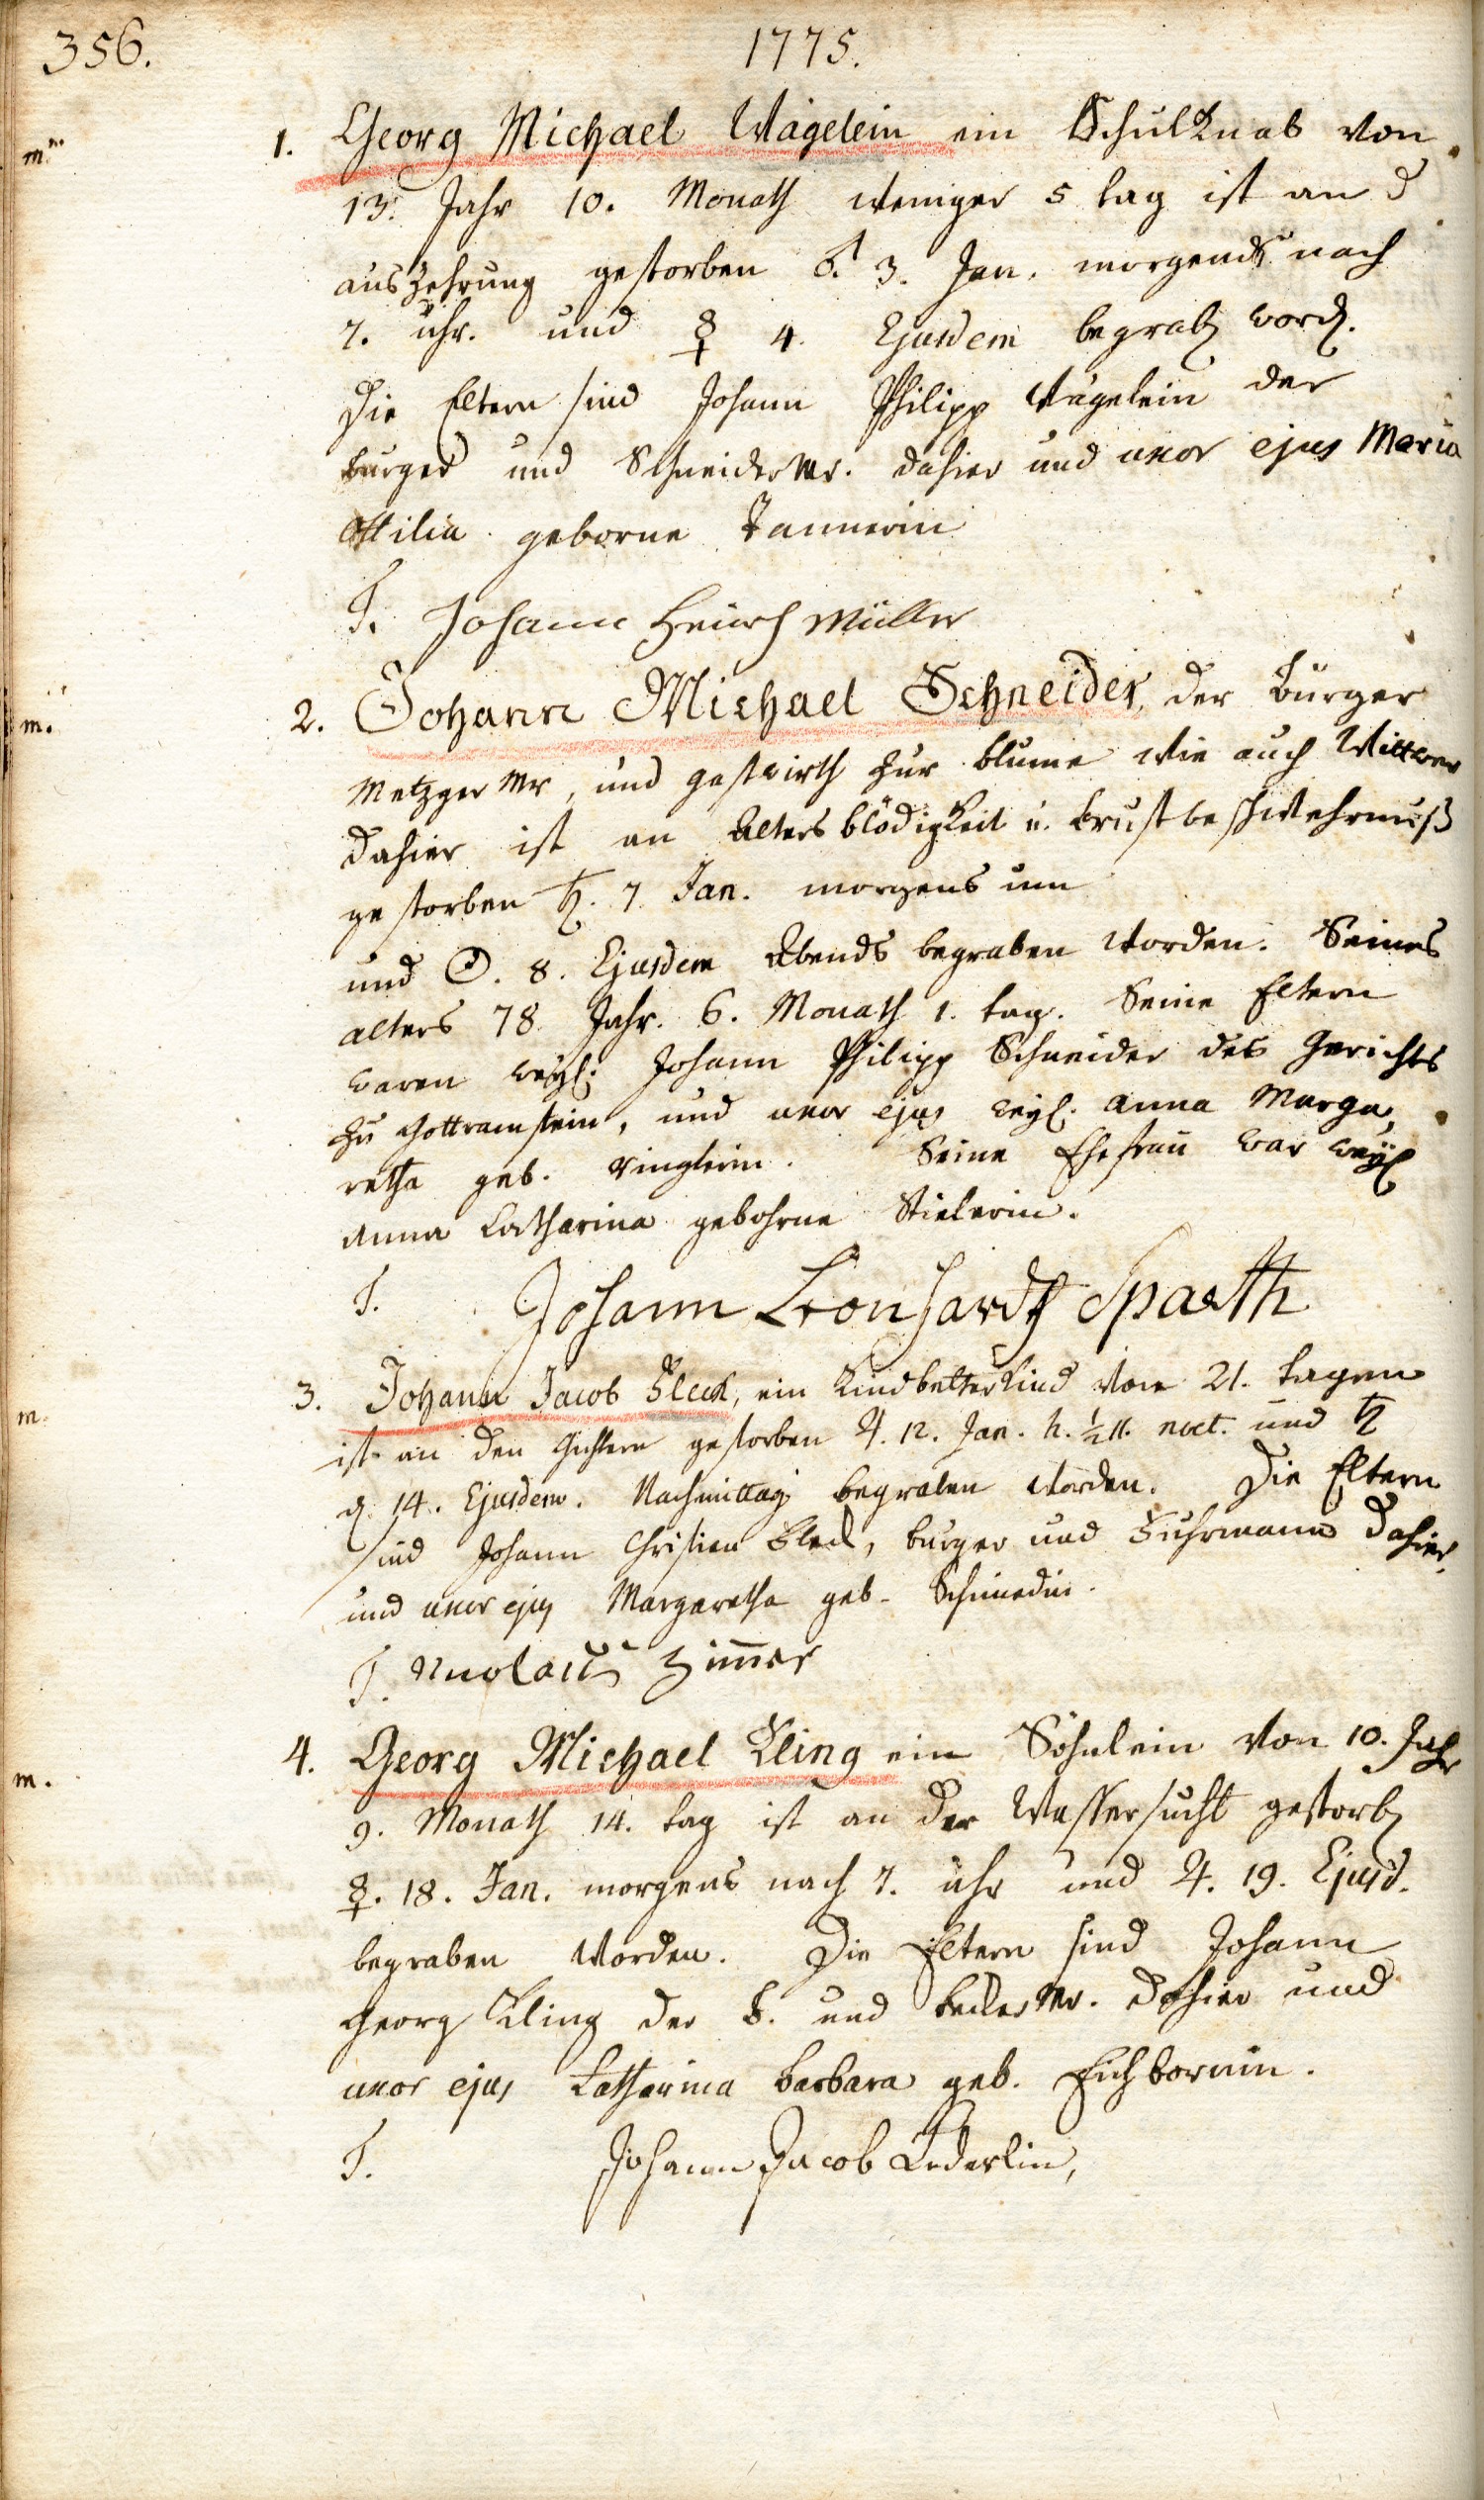 356.
1775.
m.
1. Georg Michael Wägelein ein Schulknab von
13. Jahr 10. Monath weniger 5 tag ist an d
auszehrung gestorben ♂. 3. Jan. morgends nach
7. uhr. und ☿ 4. Ejusdem begrab word.
Die Eltern sind Johann Philipp Wägelein der
burger und Schneider Mr. dahier und uxor ejus Maria
Ottilia geborne Tannerin
T. Johann Heinrich Müller
m.
2. Johann Michael Schneider, der Burger
Metzger Mr, und gastwirth zur blume wie auch Wittwer
dahier ist an Alters blödigkeit u. brustbeschwehrnuß
gestorben ♄. 7 Jan. morgens um
und ☉. 8. Ejusdem Abends begraben worden. Seines
alters 78 Jahr. 6. Monath 1. tag. Seine Eltern
waren weyl. Johann Philipp Schneider des Gerichts
zu Gottramstein, und uxor ejus weyl. Anna Marga,
retha geb. Ringlerin. Seine Ehefrau war weyl
Anna Catharina gebohrne Stielerin.
T. Johann Leonhardt Spaeth
m.
3. Johann Jacob Fleck, ein Kindbetterkind von 21. tagen
ist an den Gichtern gestorben ♃. 12. Jan. h. ½ 11. noct. und ♄
d. 14. Ejusdem. Nachmittag begraben worden. Die Eltern
sind Johann Christian Fleck, burger und Fuhrmann dahier.
und uxor ejus Margaretha geb. Schmidin.
T. Nicolaus Zimmer
m.
4. Georg Michael Kling ein Söhnlein von 10. Jahr
9. Monath 14. tag ist an der Wassersucht gestorb
☿. 18. Jan. morgens nach 7. uhr und ♃. 19. Ejusd.
begraben worden. Die Eltern sind Johann
Georg Kling der B. und Becker Mr. dahier und
uxor ejus Catharina Barbara geb. Eichbornin.
T. Johann Jacob Lederlin,